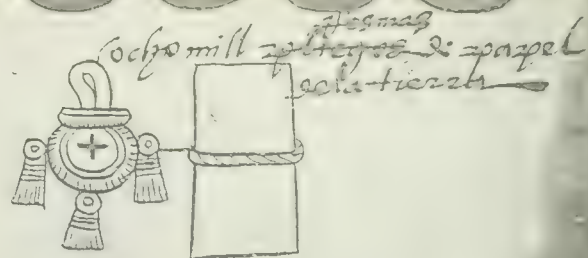 Resmas
ocho mill pliegos de papel
de la tierra